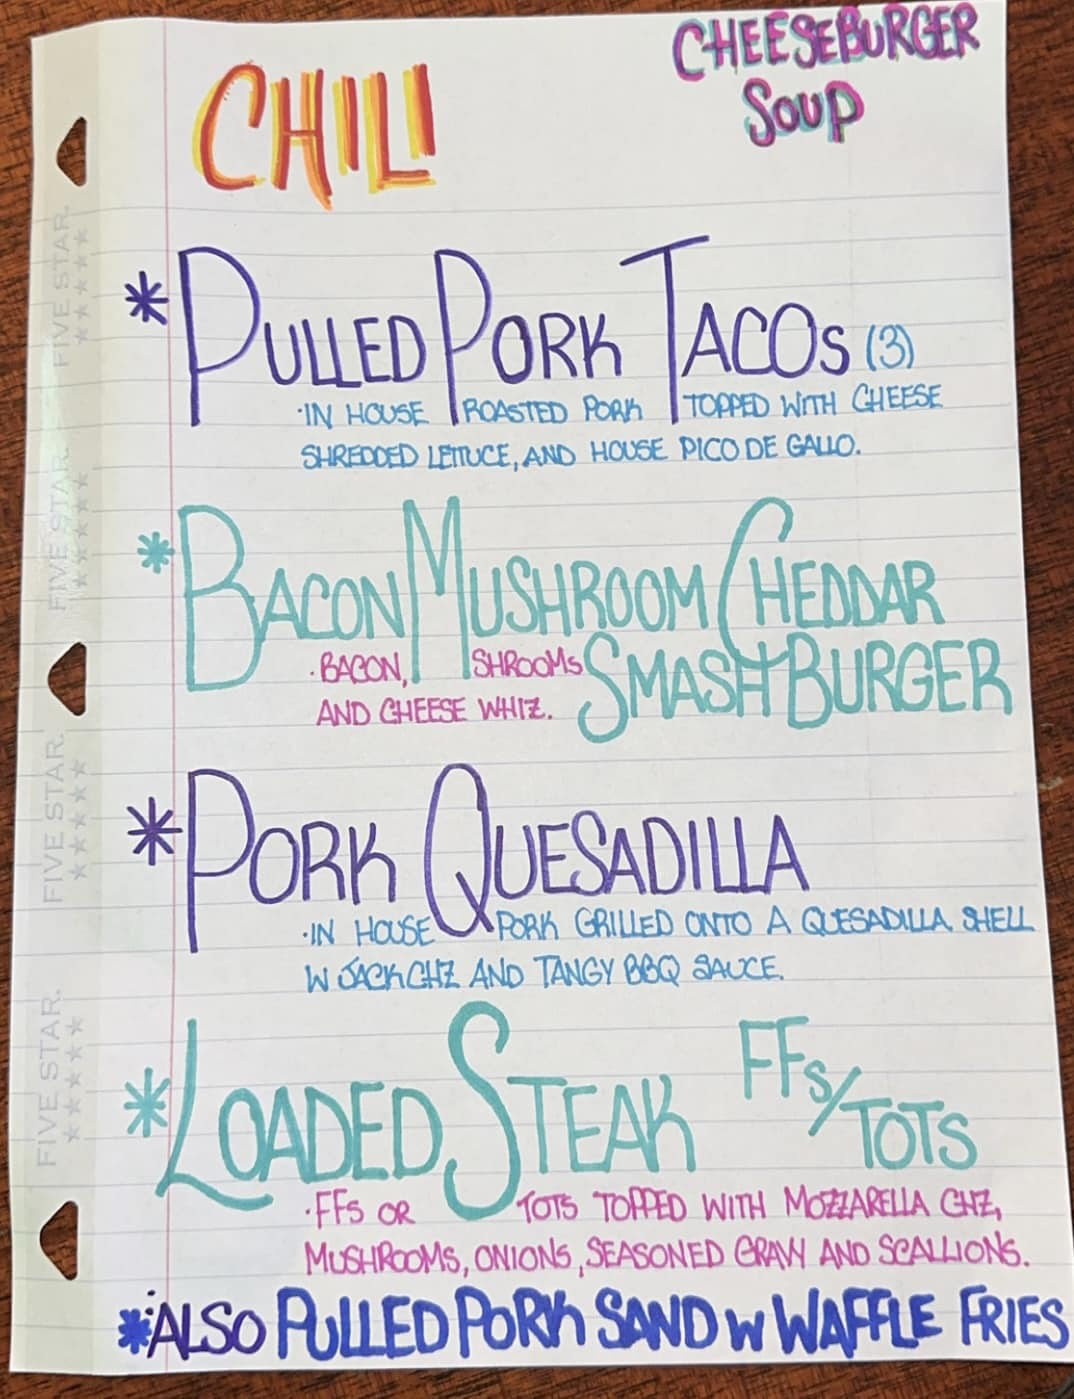 CHEESEBURGER
SOUP
CHILI
*PULLED PORK TACOS (3)
·IN HOUSE ROASTED PORK TOPPED WITH CHEESE
SHREDDED LETTUCE, AND HOUSE PICO DE GALLO.
*BACON MUSHROOM CHEDDAR
SMASH BURGER
·BACON, SHROOMS
AND CHEESE WHIZ.
*PORK QUESADILLA
·IN HOUSE PORK GRILLED ONTO A QUESADILLA SHELL
W JACK CHZ AND TANGY BBQ SAUCE.
*LOADED STEAK FFS/TOTS
·FFS OR TOTS TOPPED WITH MOZZARELLA CHZ,
MUSHROOMS, ONIONS, SEASONED GRAVY AND SCALLIONS.
*ALSO PULLED PORK SAND W WAFFLE FRIES
FIVE STAR.
★★★★★
FIVE STAR.
★★★★★
FIVE STAR.
★★★★★
FIVE STAR.
★★★★★